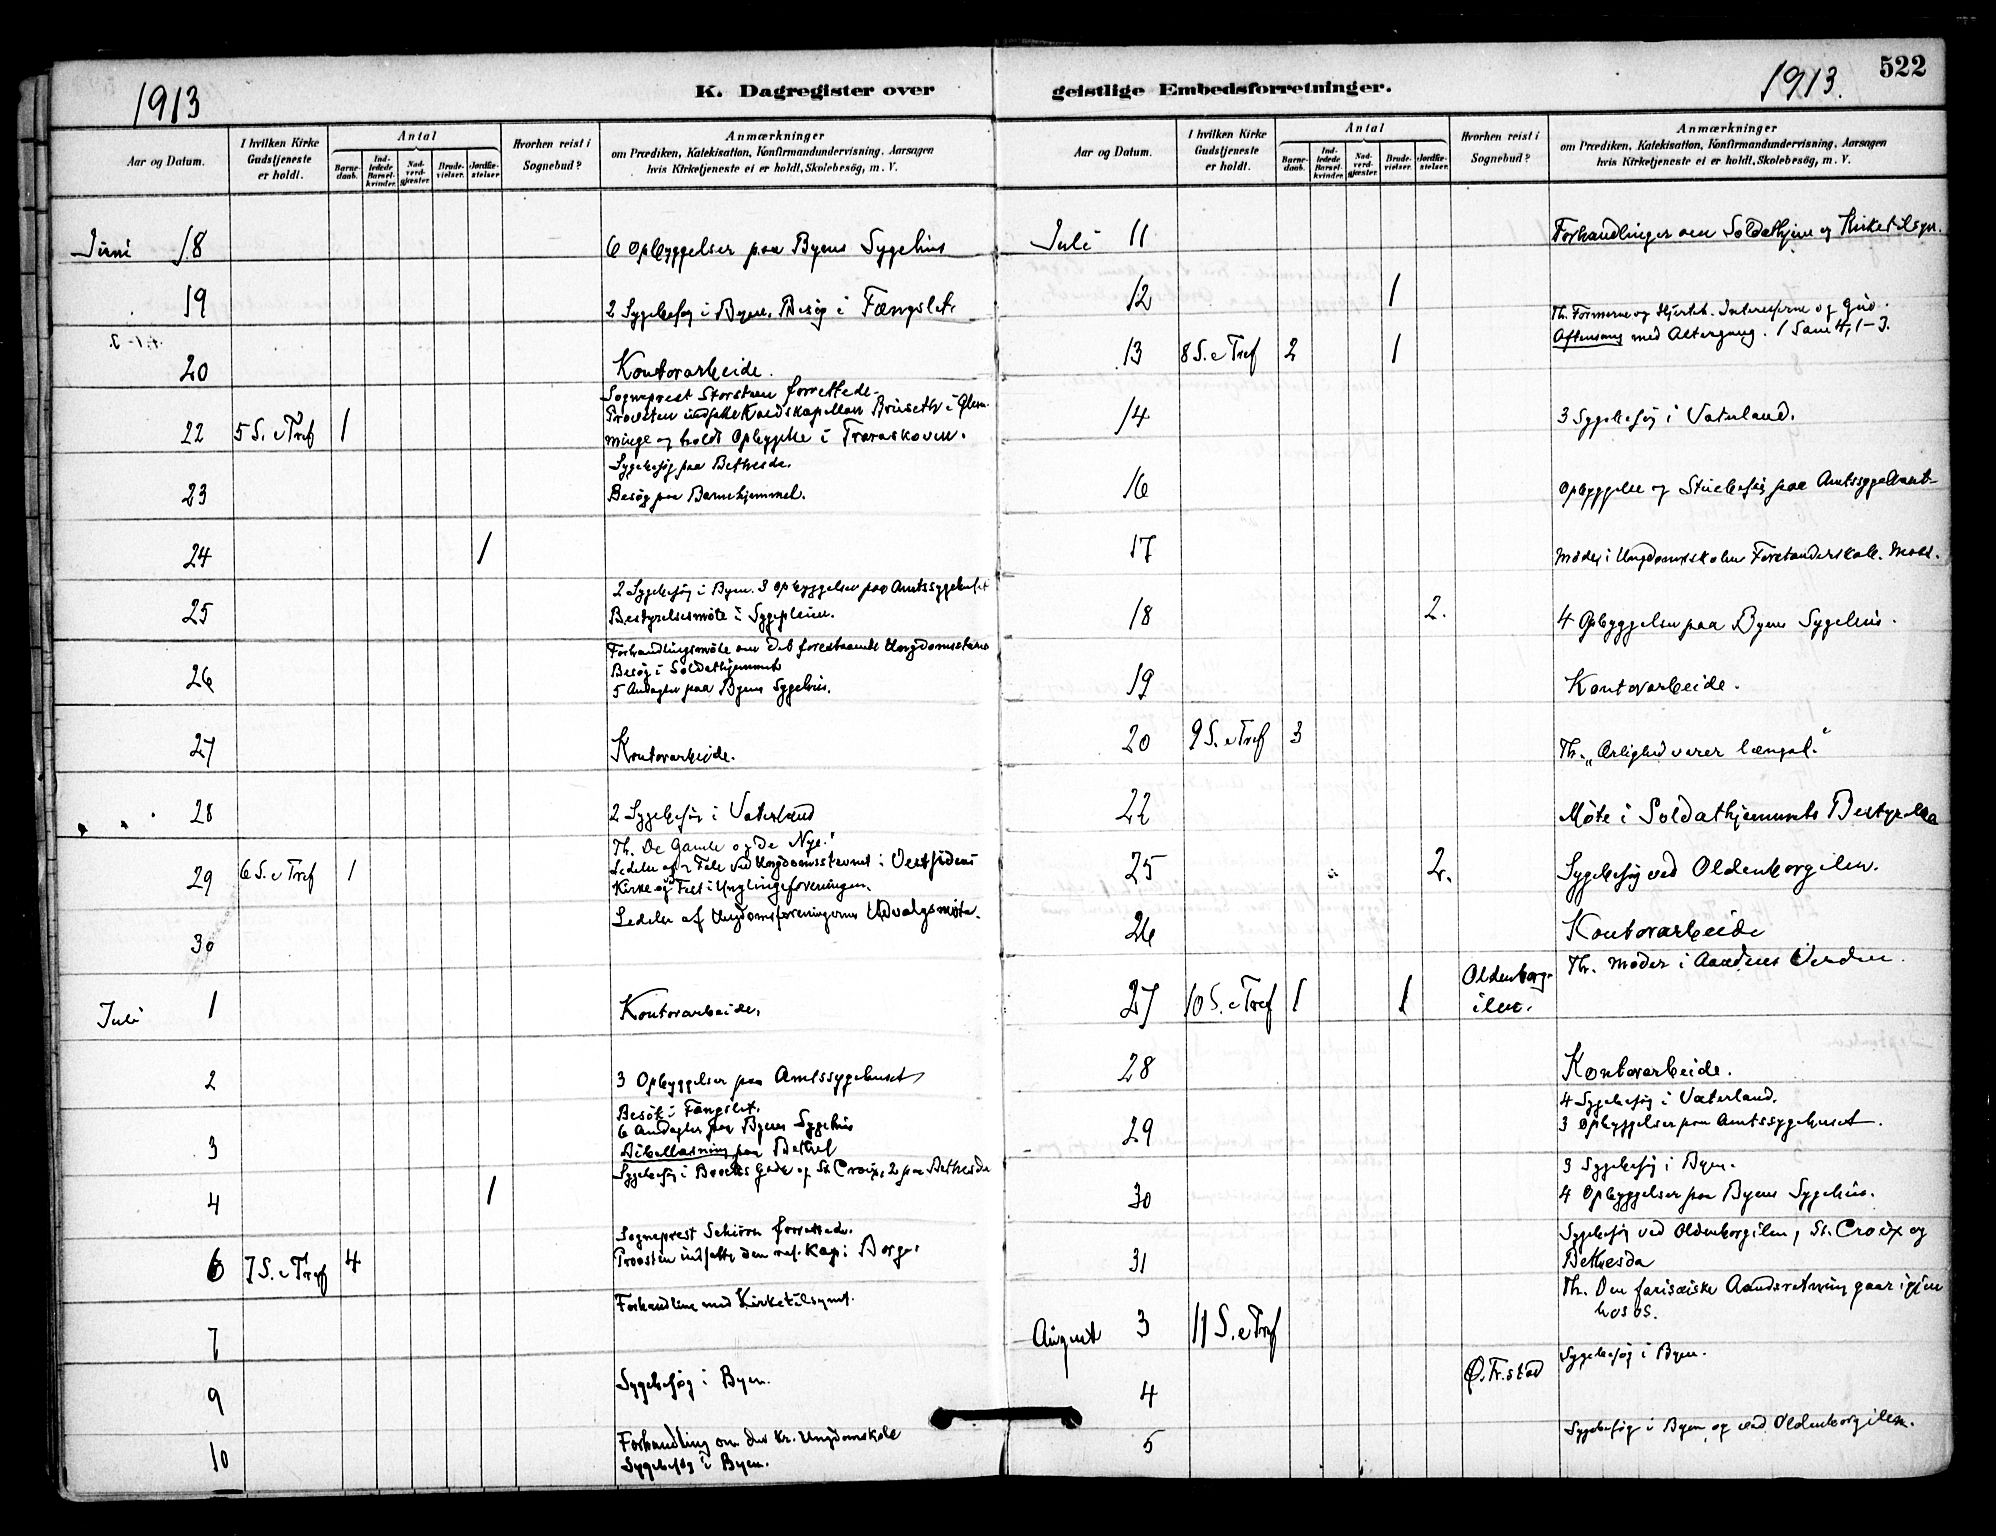 1913
K. Dagregister over
Aar og Datum.
I hvilken Kirke Gudstjeneste er holdt.
Antal
Barnedaab.
Indledede Barselkvinder.
Nadverdgjæster.
Brudevielser.
Jordfæstelser
Hvorhen reist i Sognebud?
Anmærkninger
om Prædiken, Katekisation, Konfirmandundervisning, Aarsagen
hvis Kirketjeneste ei er holdt, Skolebesög, m. V.
Juni 18 6 Opbyggelser paa Byens Sygehus
19 2 Sygebesøg i Byen. Besøg i Fængslet.
20 Kontorarbeide.
Sogneprest Storstrøm forrettede.
Provsten indsatte Kaldskapellan i Glem-
22 5 S. e Tref 1 minge og holdt Opbyggelse i Traraskoven.
Sygebesøg paa Bethesda.
23 Besøg paa Barnehjemmet.
24 1
2 Sygebesøg i Byen. 3 Opbyggelser paa Amtssygehuset
25 Bestyrelsesmöte i Sygepleien.
Forhandlingsmöte om det forestaaende Ungdomsstevne
Besøg i Soldathjemmet
26 5 Andagter paa Byens Sygehus.
27 Kontorarbeide.
28 2 Sygebesøg i Vaterland
Th. De Gamle og de Nye.
Ledelse af 2 Tale ved Ungdomsstevnet i Vestsidens
29 6 S. e Tref 1 Kirke og Fest i Ynglingeforeningen.
Ledelse af Ungdomsforeningernes Udvalgsmöte.
30
Juli 1 Kontorarbeide.
2 3 Opbyggelser paa Amtssygehuset
Besök i Fængslet.
6 Andagter paa Byens Sygehus
3 Bibellæsning paa Bethel
Sygebesøg i Brocks Gade og St. Croix, 2 paa Bethesda
4 1
Sogneprest Schiörn forrettede.
6 7 S. e Tref 4 Provsten indsatte den res. Kap i Borge.
Forhandling med Kirketilsynet.
7
9 Sygebesøg i Byen.
Forhandling om den kr. Ungdomskole
10 Sygebesøg i Byen.
geistlige Embedsforretninger.
1913.
522
Aar og Datum.
I hvilken Kirke Gudstjeneste er holdt.
Antal
Barnedaab.
Indledede Barselkvinder.
Nadverdgjæster.
Brudevielser.
Jordfæstelser.
Hvorhen reist i Sognebud?
Anmærkninger
om Prædiken, Katekisation, Konfirmandundervisning, Aarsagen
hvis Kirketjeneste ei er holdt, Skolebesög, m. V.
Juli 11 Forhandlinger om Soldathjem og Kirketilsyn.
12 1
Th. Formerne og Hjertet. Interesserne og Gud.
13 8 S. e Tref 2 1 Aftensang med Altergang. 1 Sam 4, 1-3.
14 3 Sygebesøg i Vaterland.
16 Opbyggelse og paa Amtssygehuset
17 Möde i Ungdomsskolens Forstanderskab. Moss.
18 2. 4 Opbyggelser paa Byens Sygehus.
19 Kontorarbeide.
20 9 S. e Tref 3 Th. "Ærlighed varer længst."
22 Möte i Soldathjemmets Bestyrelse
25 2. Sygebesøg ved Oldenborgilen.
26 Kontorarbeide
Th. Möder i Aandens Verden.
27 10 S. e Tref 1 1 Oldenborg-
ilen.
28 Kontorarbeide.
4 Sygebesøg i Vaterland.
29 3 Opbyggelser paa Amtssygehuset.
3 Sygebesøg i Byen.
30 4 Opbyggelser paa Byens Sygehus.
Sygebesøg ved Oldenborgilen, St. Croix og
31 Bethesda
Th. Den farisæiske Aandsretning gaar igjen
August 3 11 S. e Tref hos os.
4 Ø. Fr.stad Sygebesøg i Byen.
5 Sygebesøg i Byen og ved Oldenborgilen.